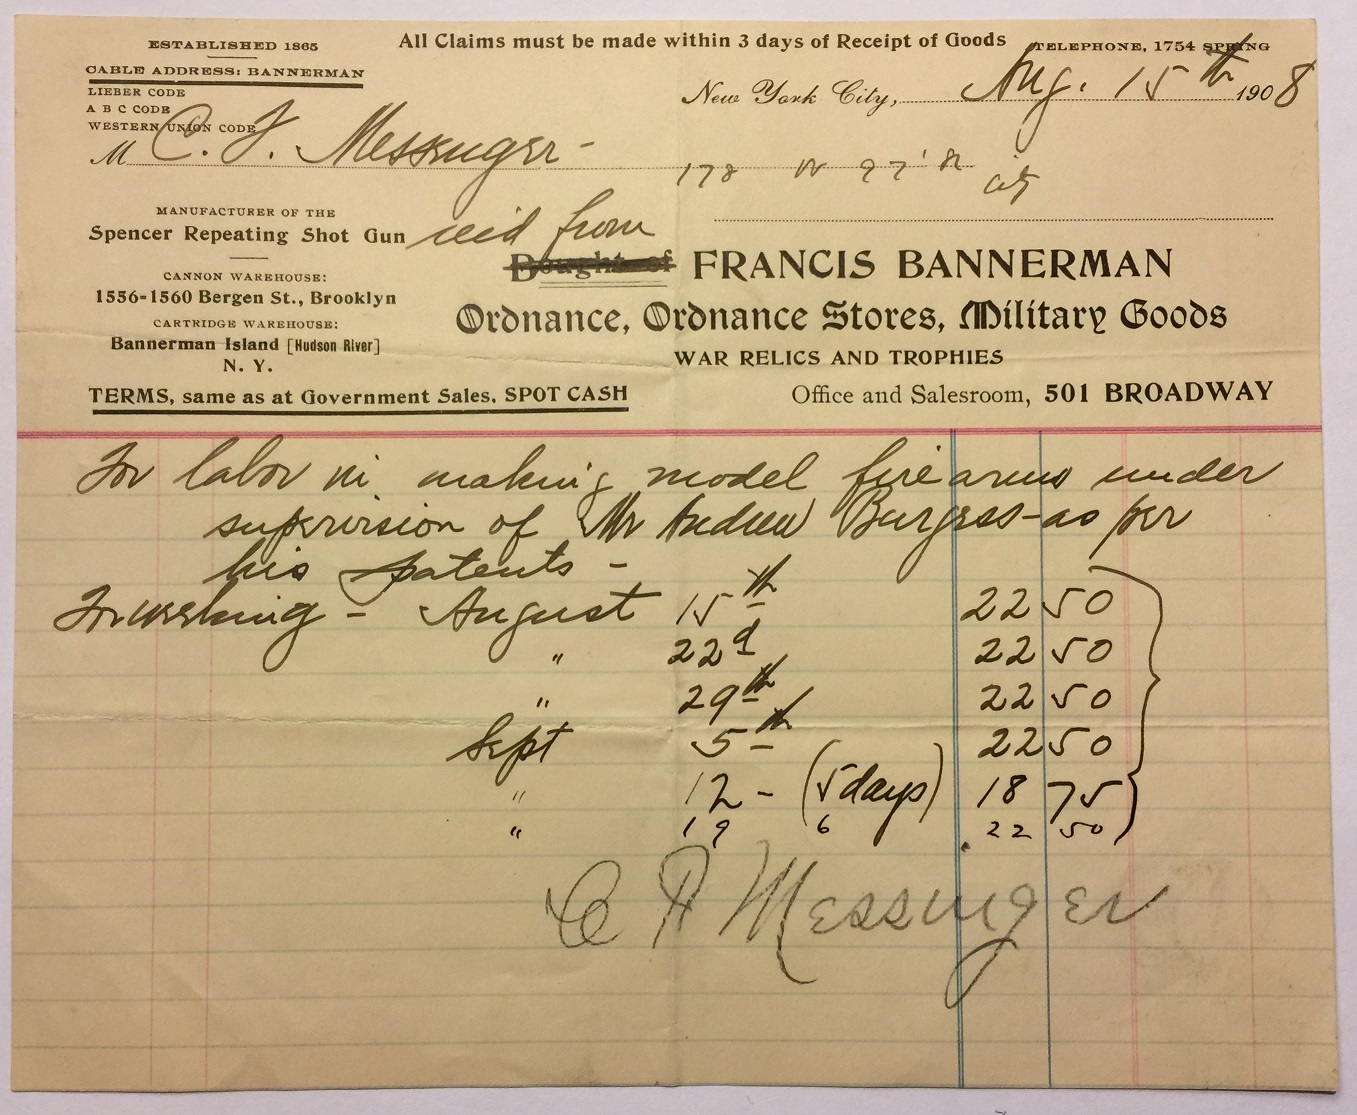 ESTABLISHED 1865
All Claims must be made within 3 days of Receipt of Goods
TELEPHONE, 1754 SPRING
CABLE ADDRESS: BANNERMAN
LIEBER CODE
A B C CODE
WESTERN UNION CODE
New York City, Aug. 15th 1908
M C. F. Messenger -
178 W 97 St
city
MANUFACTURER OF THE
Spencer Repeating Shot Gun
CANNON WAREHOUSE:
1556-1560 Bergen St., Brooklyn
CARTRIDGE WAREHOUSE:
Bannerman Island [Hudson River]
N. Y.
TERMS, same as at Government Sales, SPOT CASH
rec'd from
Bought of FRANCIS BANNERMAN
Ordnance, Ordnance Stores, Military Goods
WAR RELICS AND TROPHIES
Office and Salesroom, 501 BROADWAY
For labor in making model fire arms under
supervision of Mr Andrew Burgess - as per
his patents -
For working - August 15th 22 50
" 22d 22 50
" 29th 22 50
Sept 5th 22 50
" 12 - (5 days) 18 75
" 19 6 22 50
C F Messinger